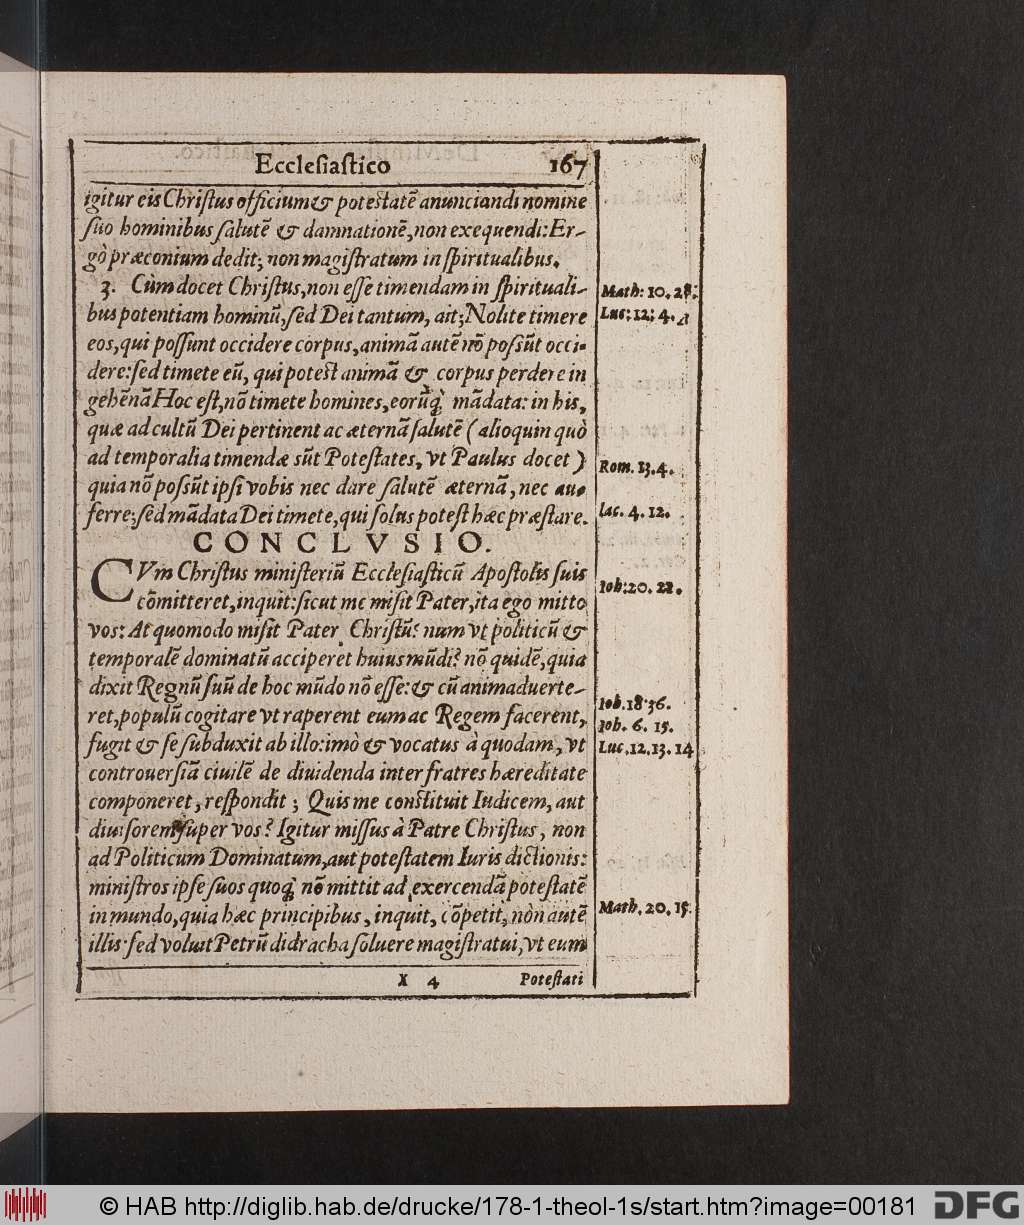 Ecclesiastico 167
igitur eis Christus officium & potestatē anunciandi nomine
suo hominibus salutē & damnationē, non exequendi: Er-
gò præconium dedit; non magistratum in spiritualibus.
3. Cùm docet Christus, non esse timendam in spirituali-
bus potentiam hominū, sed Dei tantum, ait; Nolite timere
eos, qui possunt occidere corpus, animā autē nō possūt occi-
dere: sed timete eū, qui potest animā & corpus perdere in
gehēnā Hoc est, nō timete homines, eorūq; mādata: in his,
quæ ad cultū Dei pertinent ac æternā salutē (alioquin quò
ad temporalia timendæ sūt Potestates, vt Paulus docet)
quia nō possūt ipsi vobis nec dare salutē æternā, nec au-
ferre; sed mādata Dei timete, qui solus potest hæc præstare.
CONCLVSIO.
CVm Christus ministeriū Ecclesiasticū Apostolis suis
cōmitteret, inquit: sicut me misit Pater, ita ego mitto
vos: At quomodo misit Pater Christū? num vt politicū &
temporalē dominatū acciperet huius mūdi? nō quidē, quia
dixit Regnū suū de hoc mūdo nō esse: & cū animaduerte-
ret, populū cogitare vt raperent eum ac Regem facerent,
fugit & se subduxit ab illo: imò & vocatus à quodam, vt
controuersiā ciuilē de diuidenda inter fratres hæreditate
componeret, respondit; Quis me constituit Iudicem, aut
diuisorem super vos? Igitur missus à Patre Christus, non
ad Politicum Dominatum, aut potestatem Iuris dictionis:
ministros ipse suos quoq; nō mittit ad exercendā potestatē
in mundo, quia hæc principibus, inquit, cōpetit, nòn autē
illis: sed voluit Petrū didracha soluere magistratui, vt eum
X 4 Potestati
Math: 10. 28.
Luc: 12: 4.
Rom. 13. 4.
Iac. 4. 12.
Ioh: 20. 22.
Ioh. 18 36.
Ioh. 6. 15.
Luc. 12. 13. 14
Math. 20. 15.
© HAB http://diglib.hab.de/drucke/178-1-theol-1s/start.htm?image=00181 DFG